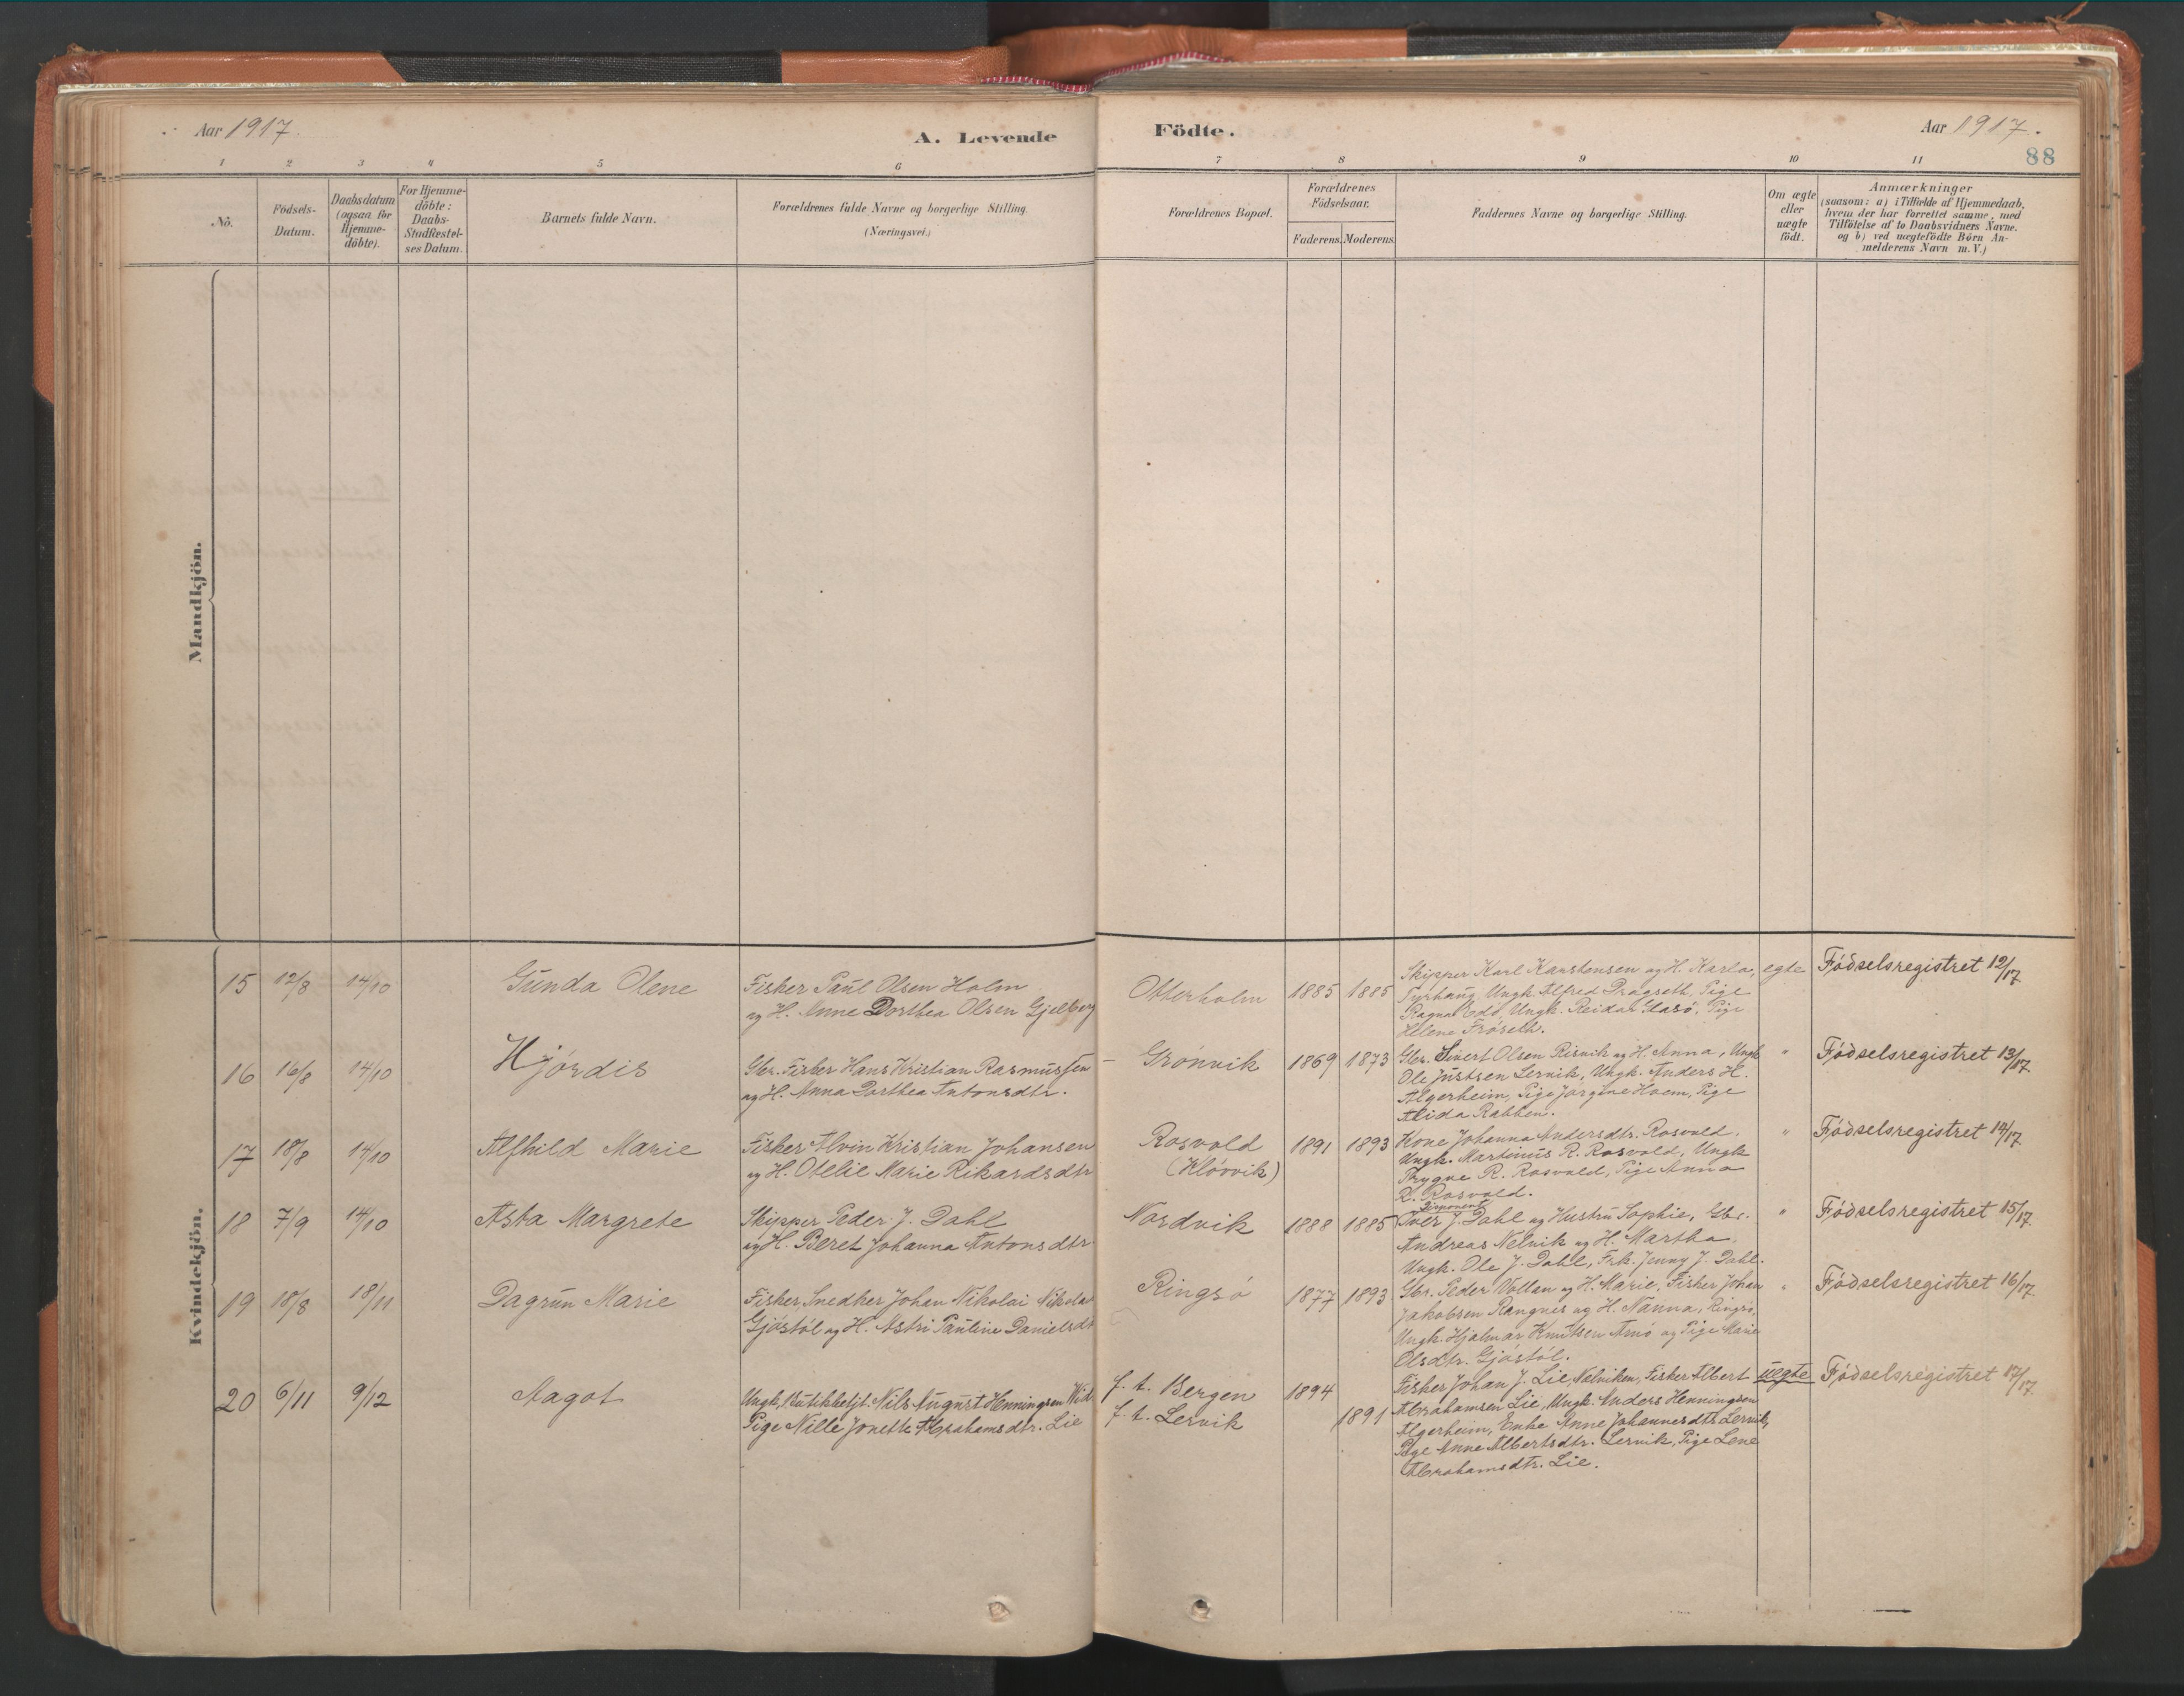 Aar 1917.
A. Levende
Födte.
Aar 1917.
88
1 2 3 4 5 6 7 8 9 10 11
No.
Födsels-
Datum.
Daabsdatum
(ogsaa for
Hjemme-
döbte).
For Hjemme-
döbte:
Daabs-
Stadfæstel-
ses Datum.
Barnets fulde Navn.
Forældrenes fulde Navne og borgerlige Stilling.
(Næringsvei.)
Forældrenes Bopæl.
Forældrenes
Födselsaar.
Faderens.
Moderens.
Faddernes Navne og borgerlige Stilling.
Om ægte
eller
uægte
födt.
Anmærkninger
(saasom: a) i Tilfælde af Hjemmedaab,
hvem der har forrettet samme, med
Tilföielse af to Daabsvidners Navne.
og b) ved uægtefödte Börn An-
melderens Navn m. V.)
Mandkjön.
Kvindekjön.
15 12/8 14/10 Gunda Olene
Fisker Paul Olsen Holm
og H. Anne Dorthea Olsen Gjelberg
Otterholm 1885 1885
Skipper Karl Karstensen og H. Karla,
Tyrhaug, Ungk. Alfred Dragseth, Pige
Ragna Edö, Ungk. Reidar Glasö, Pige
Helene Fröseth.
egte Födselsregistret 12/17
16 16/8 14/10 Hjördis
Gbr. Fisker Hans Kristian Rasmussen
og H. Anna Dorthea Antonsdtr.
Grönvik 1869 1873
Gbr. Sivert Olsen Risvik og H. Anna, Ungk
Ole Justsen Lervik, Ungk. Anders H.
Algerheim, Pige Jörgine Hoem, Pige
Alida Rabben.
" Födselsregistret 13/17.
17 18/8 14/10 Alfhild Marie
Fisker Alvin Kristian Johansen
og H. Otelie Marie Rikardsdtr
Rosvold
(Klövvik)
1891 1893
Kone Johanna Andersdtr. Rosvold.
Ungk. Martinus R. Rosvold, Ungk
Trygve R. Rosvold, Pige Anna
R. Rosvold.
" Födselsregistret 14/17.
18 7/9 14/10 Asta Margrete
Skipper Peder J. Dahl
og H. Beret Johanna Antonsdtr.
Nordvik 1888 1885
Iver J. Dahl og Hustru Sophie, Gbr.
Andreas Nelvik og H. Martha.
Ungk. Ole J. Dahl, Frk. Jenny J. Dahl.
" Födselsregistret 15/17.
19 18/8 18/11 Dagrun Marie
Fisker, Snedker Johan Nikolai Nikolai
Gjöstöl og H. Astri Pauline Danielsdt
Ringsö 1877 1893
Gbr. Peder Vollan og H. Marie, Fisker Johan
Jakobsen Rangnes og H. Nanna, Ringsö,
Ungk. Hjalmar Knutsen Arnö og Pige Marie
Olsdtr. Gjöstöl.
" Födselsregistret 16/17.
20 6/11 9/12 Aagot
Ungk. Butikbetjt. Nils August Henningsen
Pige Nille Jonette Abrahamsdtr. Lie
f. t. Bergen 1894
f. t. Lervik 1891
Fisker Johan J. Lie, Nelviken, Fisker Albert
Abrahamsen Lie, Ungk. Anders Henningsen
Algerheim, Enke Anne Johannesdtr. Lervik,
Pige Anne Albertsdtr. Lervik, Pige Lene
Abrahamsdtr. Lie.
uegte Födselsregistret 17/17.